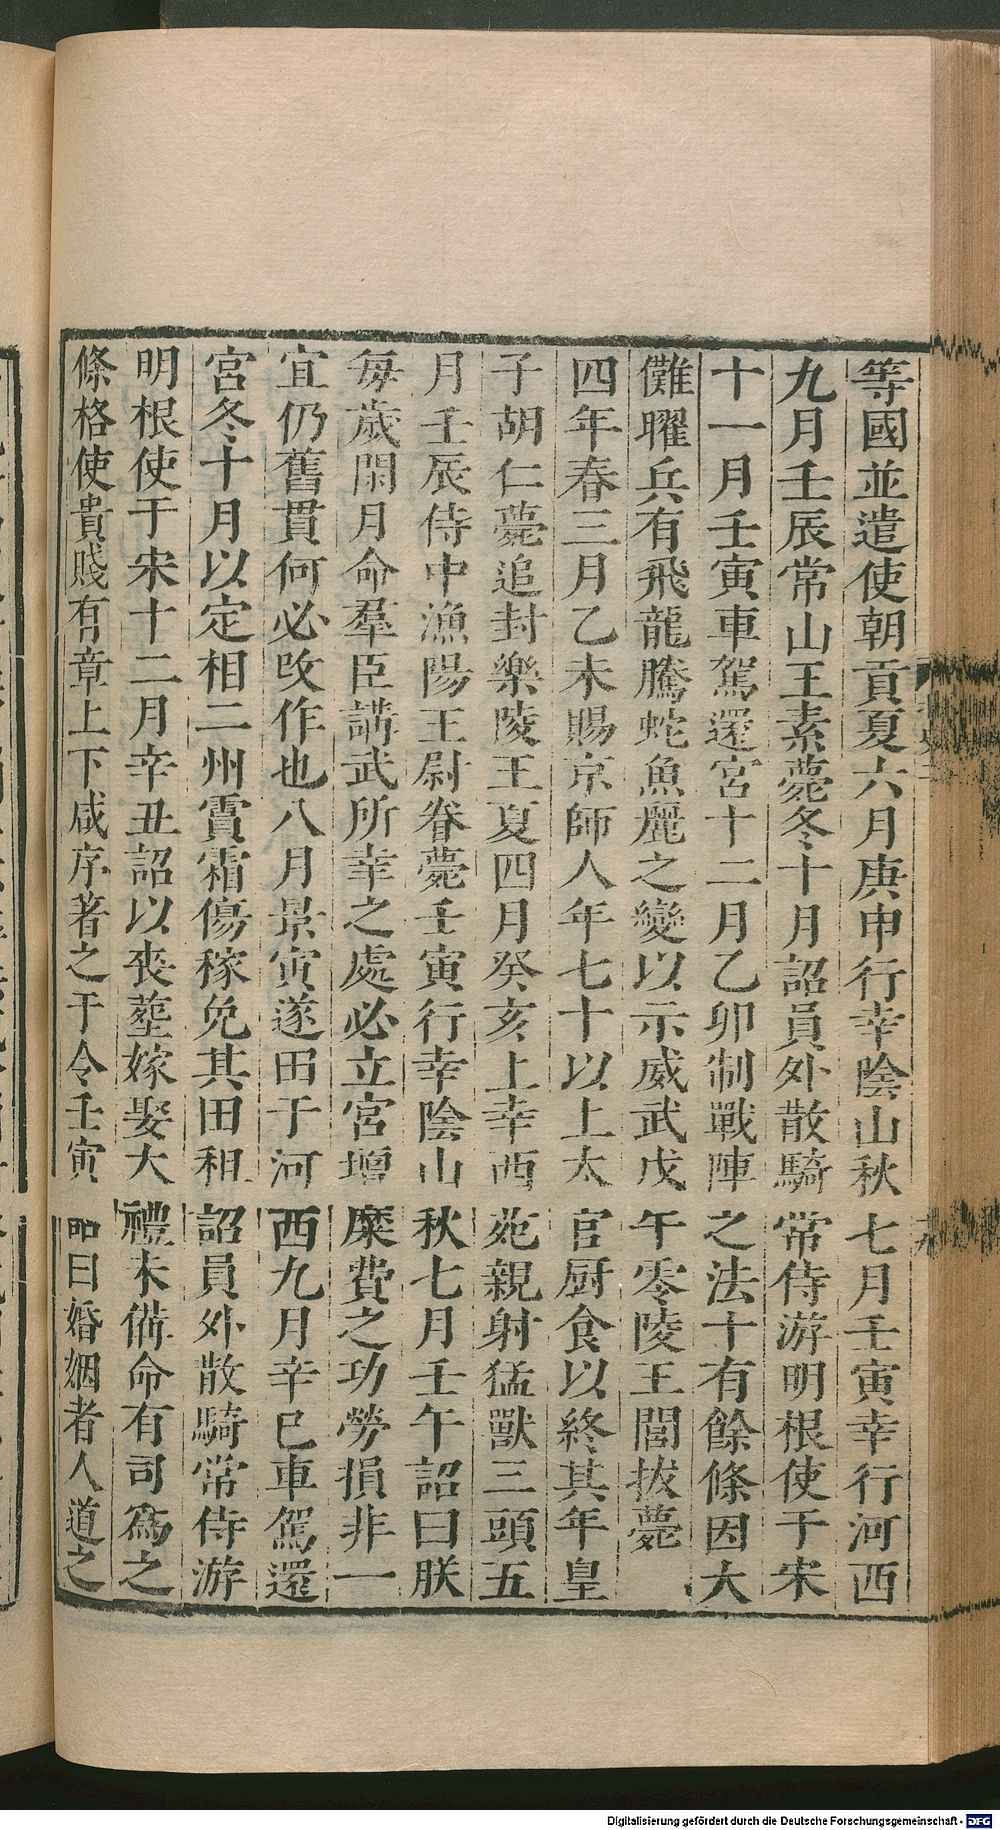 等國並遣使朝貢夏六月庚申行幸陰山秋七月壬寅幸行河西
九月壬辰常山王素薨冬十月詔員外散騎常侍游明根使于宋
十一月壬寅車駕還宮十二月乙卯制戰陣之法十有餘條因大
儺曜兵有飛龍騰蛇魚麗之變以示威武戊午零陵王閭拔薨
四年春三月乙未賜京師人年七十以上太官厨食以終其年皇
子胡仁薨追封樂陵王夏四月癸亥上幸西苑親射猛獸三頭五
月壬辰侍中漁陽王尉眷薨壬寅行幸陰山秋七月壬午詔曰朕
每歲閑月命羣臣講武所幸之處必立宮壇糜費之功勞損非一
宜仍舊貫何必改作也八月景寅遂田于河西九月辛巳車駕還
宮冬十月以定相二州霣霜傷稼免其田租詔員外散騎常侍游
明根使于宋十二月辛丑詔以喪塟嫁娶大禮未備命有司爲之
條格使貴賤有章上下咸序著之于令壬寅詔曰婚姻者人道之
Digitalisierung gefördert durch die Deutsche Forschungsgemeinschaft - DFG